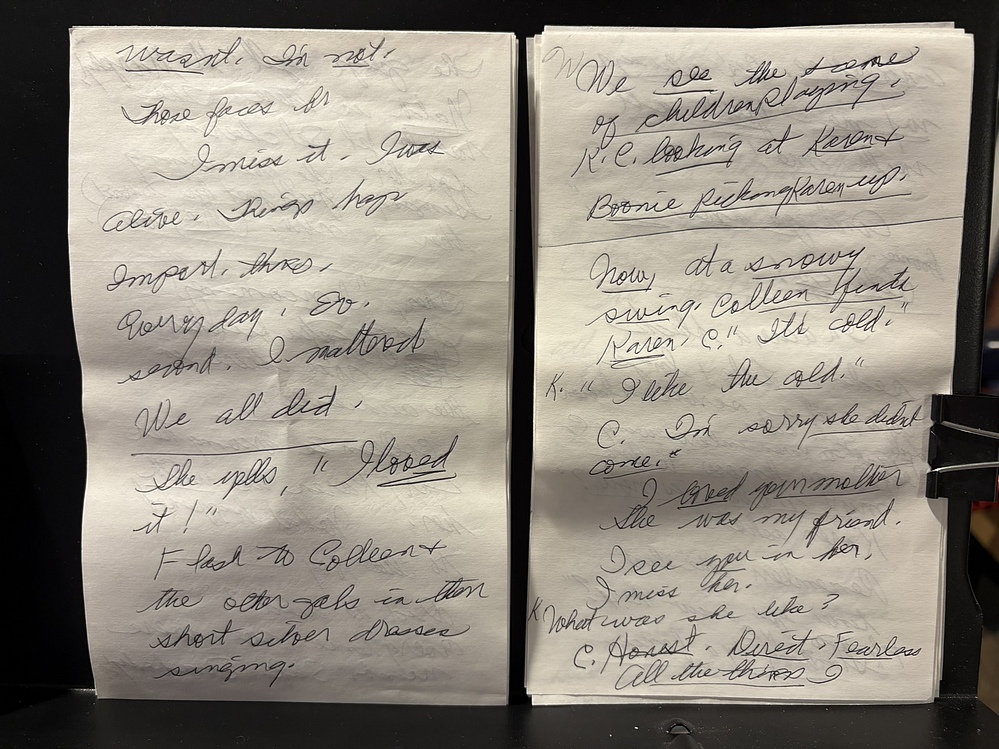 wasnt. Im not.
Those faces br
I miss it. I was
alive. Things hap
Import. thns.
Every day. Ev.
second. I mattered
We all did.
She yells, "I loved
it!"
Flash to Colleen +
the other gals in their
short silver dresses
singing.
We see the scene
of children playing.
K. C. looking at Karen +
Boonie Picking Karen up.
Now, at a snowy
swing. Colleen finds
Karen. C. "Its cold."
K. "I like the cold."
C. Im sorry she didnt
come."
I loved your mother
She was my friend.
I see you in her.
I miss her.
K What was she like?
C. Honest. Direct. Fearless
All the things I